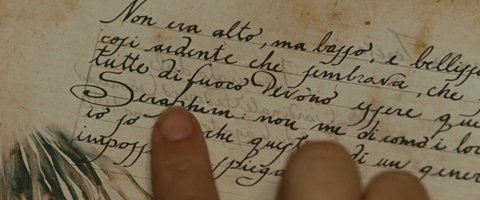 Non era alto, ma basso, e belliss
così ardente che sembrava, che
tutte di fuoco Devono essere que
Seraphim: non me di como i lo
io so che quest di un gener
imposs spiega